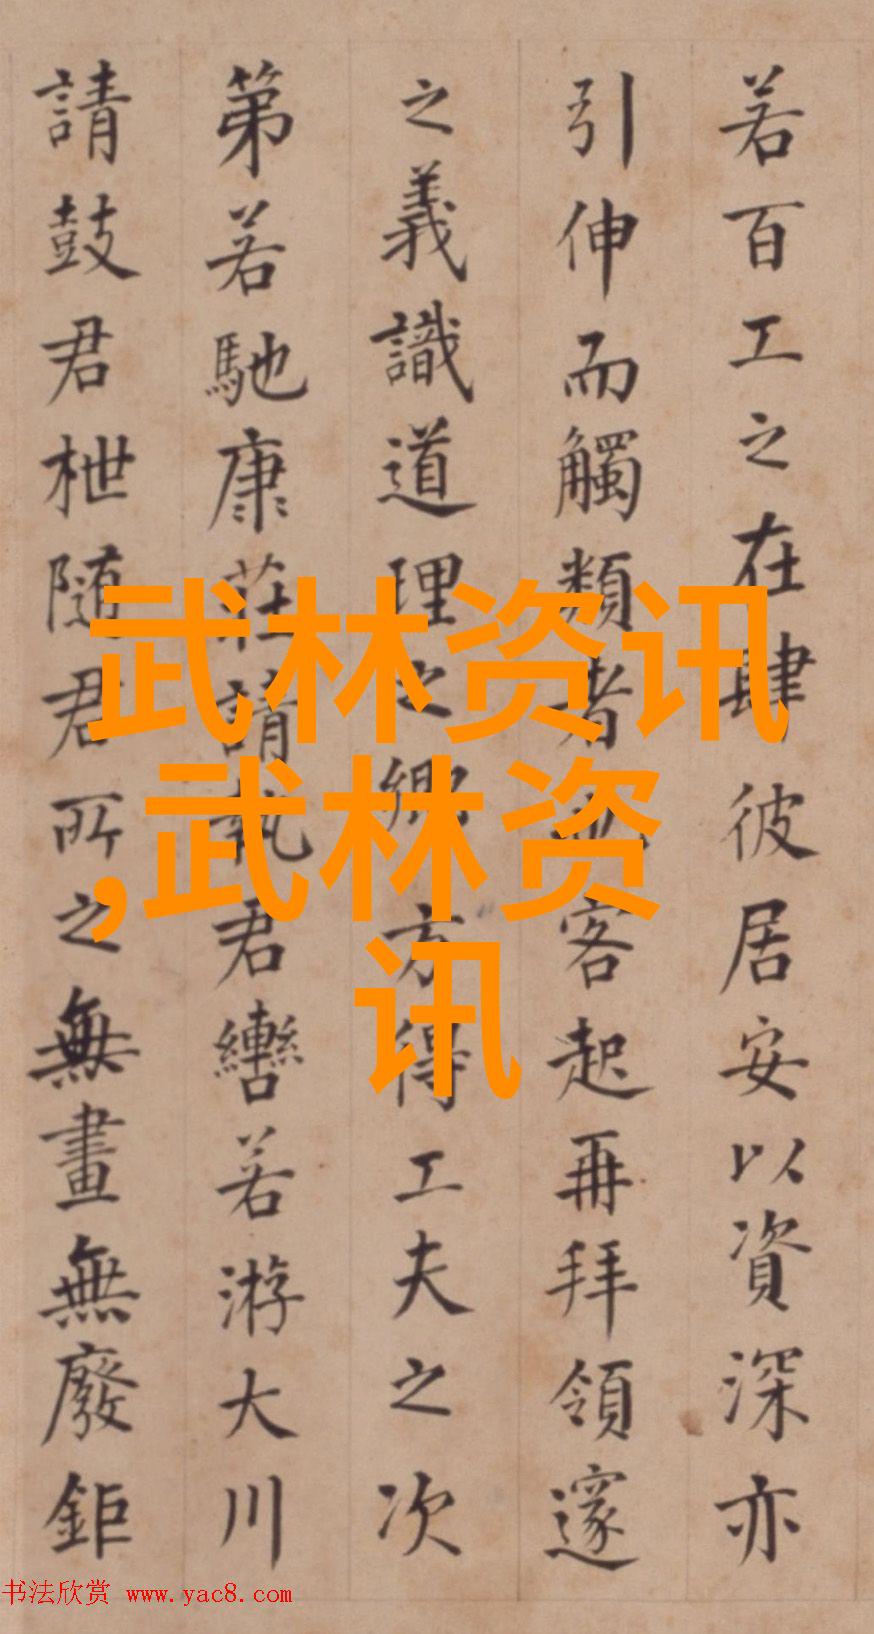 若百工之在肆彼居安以資深亦
引伸而觸類者客起再拜領邃
之義識道理之鄉方得工夫之次
第若馳康莊請執君轡若游大川
請鼓君枻随君所之無畫無廢鉅
武林资讯
,武林资
讯
书法欣赏 www.yac8.com